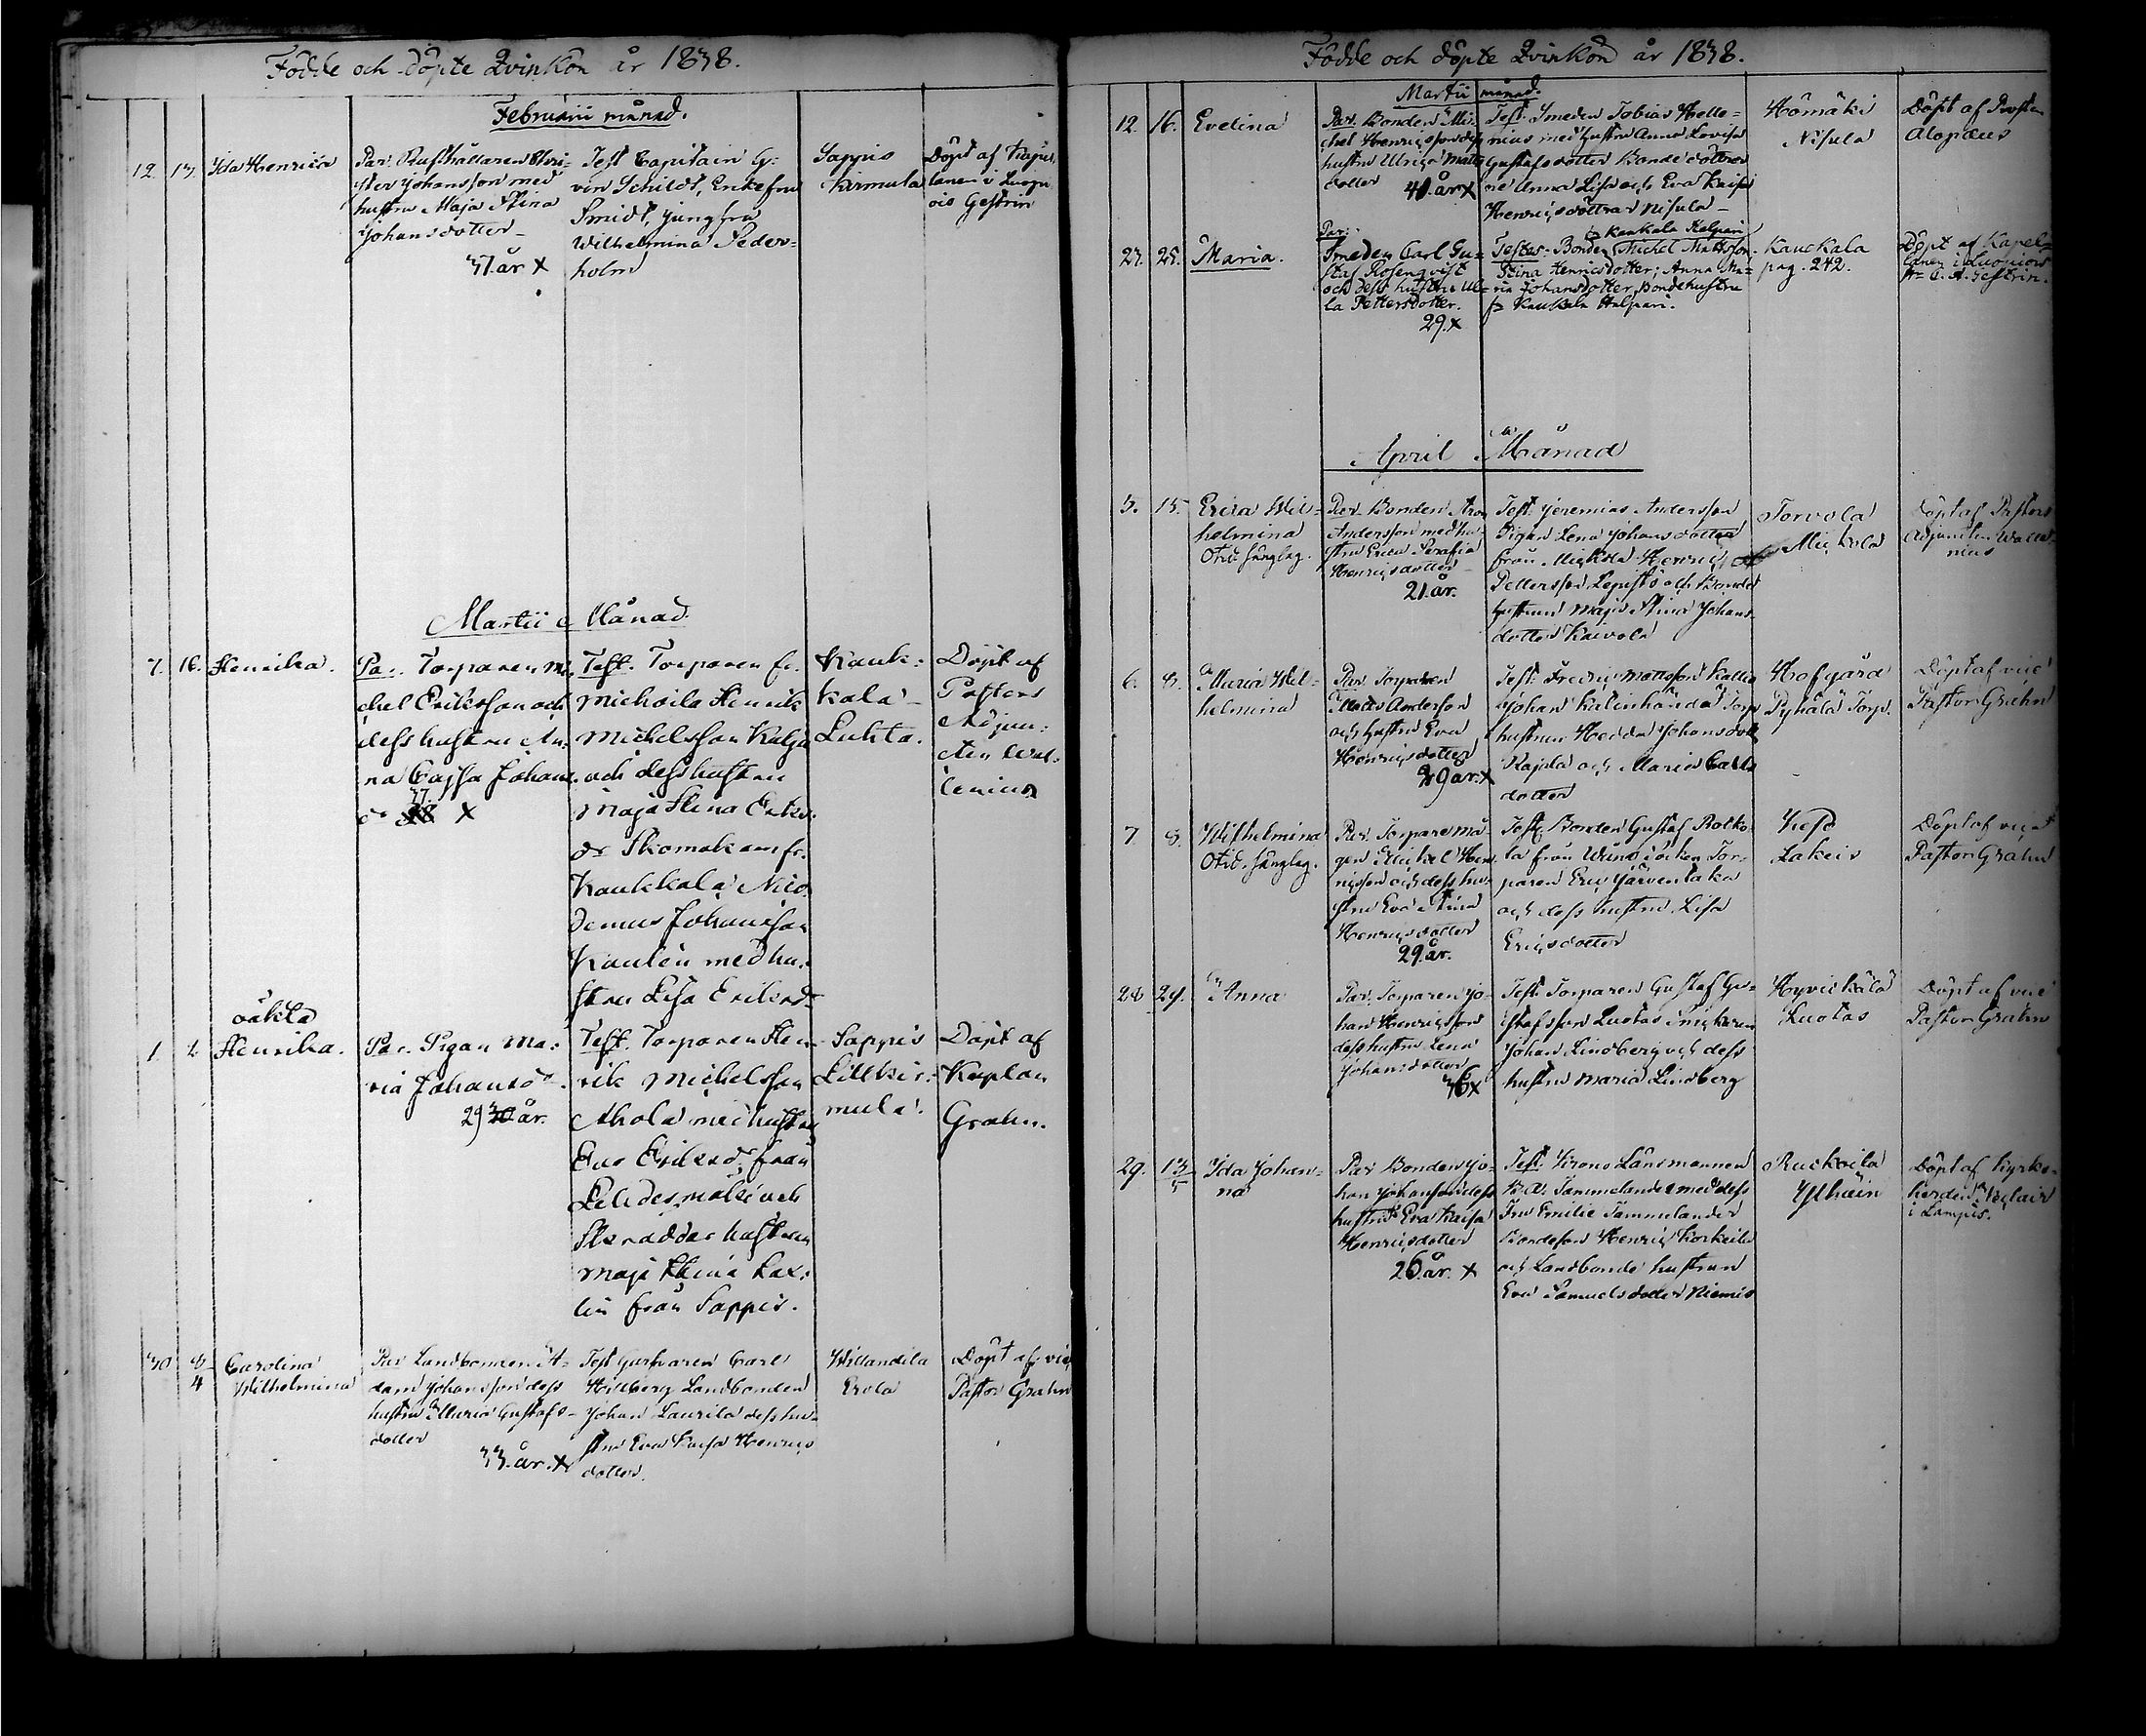 Födde och döpte Qvinkön år 1838.
Februarii månad.
12. 13. Ida Henrica
Par. Rusthållaren Chri-
ster Johansson med
hustru Maja Stina
Johansdotter
37. år x
Test Capitain G:
von Schildt, Enkefru
Smidt, jungfru
Wilhelmina Seder-
holm
Sappis
Kirmula
Döpt af Kapel-
lanen i Luopi-
ois Gestrin
Martii Månad.
7. 16. Henrika.
Par. Torparen Mi-
chel Eriksson och
dess hustru An-
na Cajsa Johans
dr 37 x
Test. Torparen fr.
Michoila Henrik
Michelsson
och dess hustru
Maja Stina Eriks
dr Skomakaren fr.
Kaukkala Nico-
demus Johansson
med hu-
stru Lisa Eriksdr
Kauk-
kala
Luhta.
Döpt af
Pastors
Adjun-
cten Wal-
lenius
oäkta
1. 2. Henrika.
Par. Pigan Ma-
ria Johansdr.
29 år.
Test. Torparen Hen-
rik Michelsson
Ahola med hustru
Eva Eriksdr från
och
Skräddar hustrun
Maja Stina Lax-
lin från Sappis.
Sappis
Lillkir-
mula.
Döpt af
Kaplan
Grahn.
30 8/4 Carolina
Wilhelmina
Par Landbonden A-
dam Johansson dess
hustru Maria Gustafs-
dotter
33. år. x
Test Carl
Landbonden
Johan Laurila dess hu-
stru Eva Kaisa Henrics
dotter.
Willandila
Erola
Döpt af vice
Pastor Grahn
Födde och döpte Qvinkön år 1838.
Martii månad.
12. 16. Evelina
Par. Bonden Mi-
chel Henricsson dess
hustru Ulrica Matts
dotter
40. år x
Test. Smeden Tobias Helle-
nius med hustru Anna Lovisa
Gustafsdotter Bonde döttrar
ne Anna Lisa och Eva Kaisa
Henricsdöttrar Nisula
Hömäki
Nisula
Döpt af Prosten
Alopæus
27. 29. Maria.
Par:
Smeden Carl Gu-
staf Rosenqvist
och dess hustru Ul-
la Pettersdotter.
29. x
fr Kaukala Halpari
Testes: Bonden Michel Mattsson
Stina Henricsdotter; Anna Ma-
ria Johansdotter, Bondehustru
fr Kaukala Halpari.
Kaukala
pag. 242.
Döpt af Kapel-
lanen i Luopiois
Hr C. A. Gestrin.
April Månad
3. 15. Erica Wil-
helmina
Otid. sänglag.
Par. Bonden Aron
Andersson med hu-
stru Erica Serafia
Henricsdotter
21. år.
Test. Jeremias Andersson
Pigan Lena Johansdotter
från Mickola Henric
Pettersson Lepistö och Bonde
hustrun Maja Stina Johans
dotter Kaivola
Torvola
Mickola
Döpt af Pastors
Adjuncten Walle-
nius
6. 8. Maria Wil-
helmina
Par Torparen
Matts Anderson
och hustru Eva
Henricsdotter
29 år. x
Test: Fredric Mattsson Kallio
Johan Torp
hustrun Hedda Johansdotter
Rajala och Maria Carls
dotter
Hofgård
Pyhälä Torp.
Döpt af vice
Pastor Grahn
7. 8. Wilhelmina
Otid. sänglag.
Par. Torpare må-
gen Mickel Hen-
ricsson och dess hu-
stru Eva Stina
Henricsdotter
29. år.
Test: Bonden Gustaf Rolko-
la från socken Tor-
paren Eric Järventaka
och dess hustru Lisa
Ericsdotter
Lakeis
Döpt af vice
Pastor Grahn
28 29. Anna
Par. Torparen Jo-
han Henricsson
dess hustru Lena
Johansdotter
36 x
Test. Torparen Gustaf Gu-
stafsson Luotas
Johan Lindberg och dess
hustru Maria Lindberg
Hyvickälä
Luotas
Döpt af vice
Pastor Grahn
29. 13/5 Ida Johan-
na
Par Bonden Jo-
han Johansson dess
hustru Eva Kaisa
Henricsdotter
26. år. x
Test: Krono Länsmannen
Tammelander med dess
Fru Emilie Tammelander
Bondeson Henric Korkeila
och Landbonde hustrun
Eva Samuelsdotter Niemis
Ruckoila
Yлhäin
Döpt af Kyrko-
herden
i Lampis.